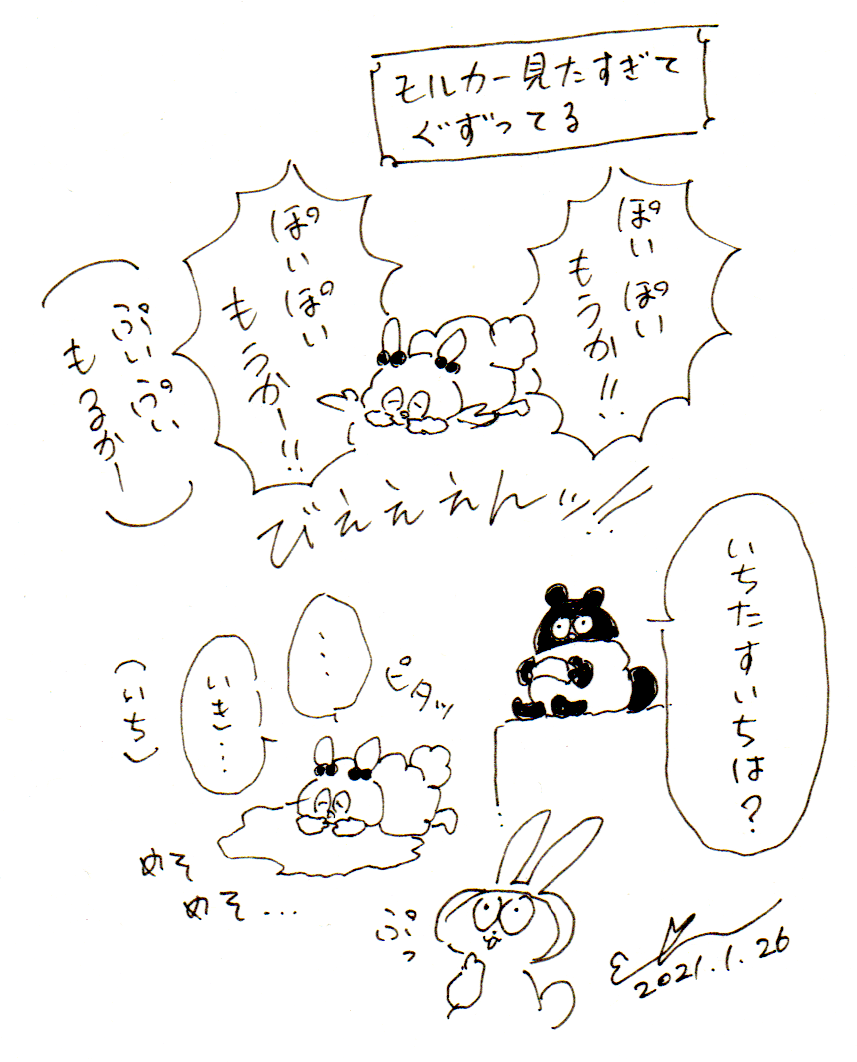 モルカー見たすぎて
ぐずってる
ぽいぽい
もうか!!
ぽいぽい
もうかー!!
ぷいぷい
もるかー
びぇぇぇんッ!!
いちたすいちは?
ピタッ
…
いき…
(いち)
めそ
めそ…
ぷっ
2021.1.26